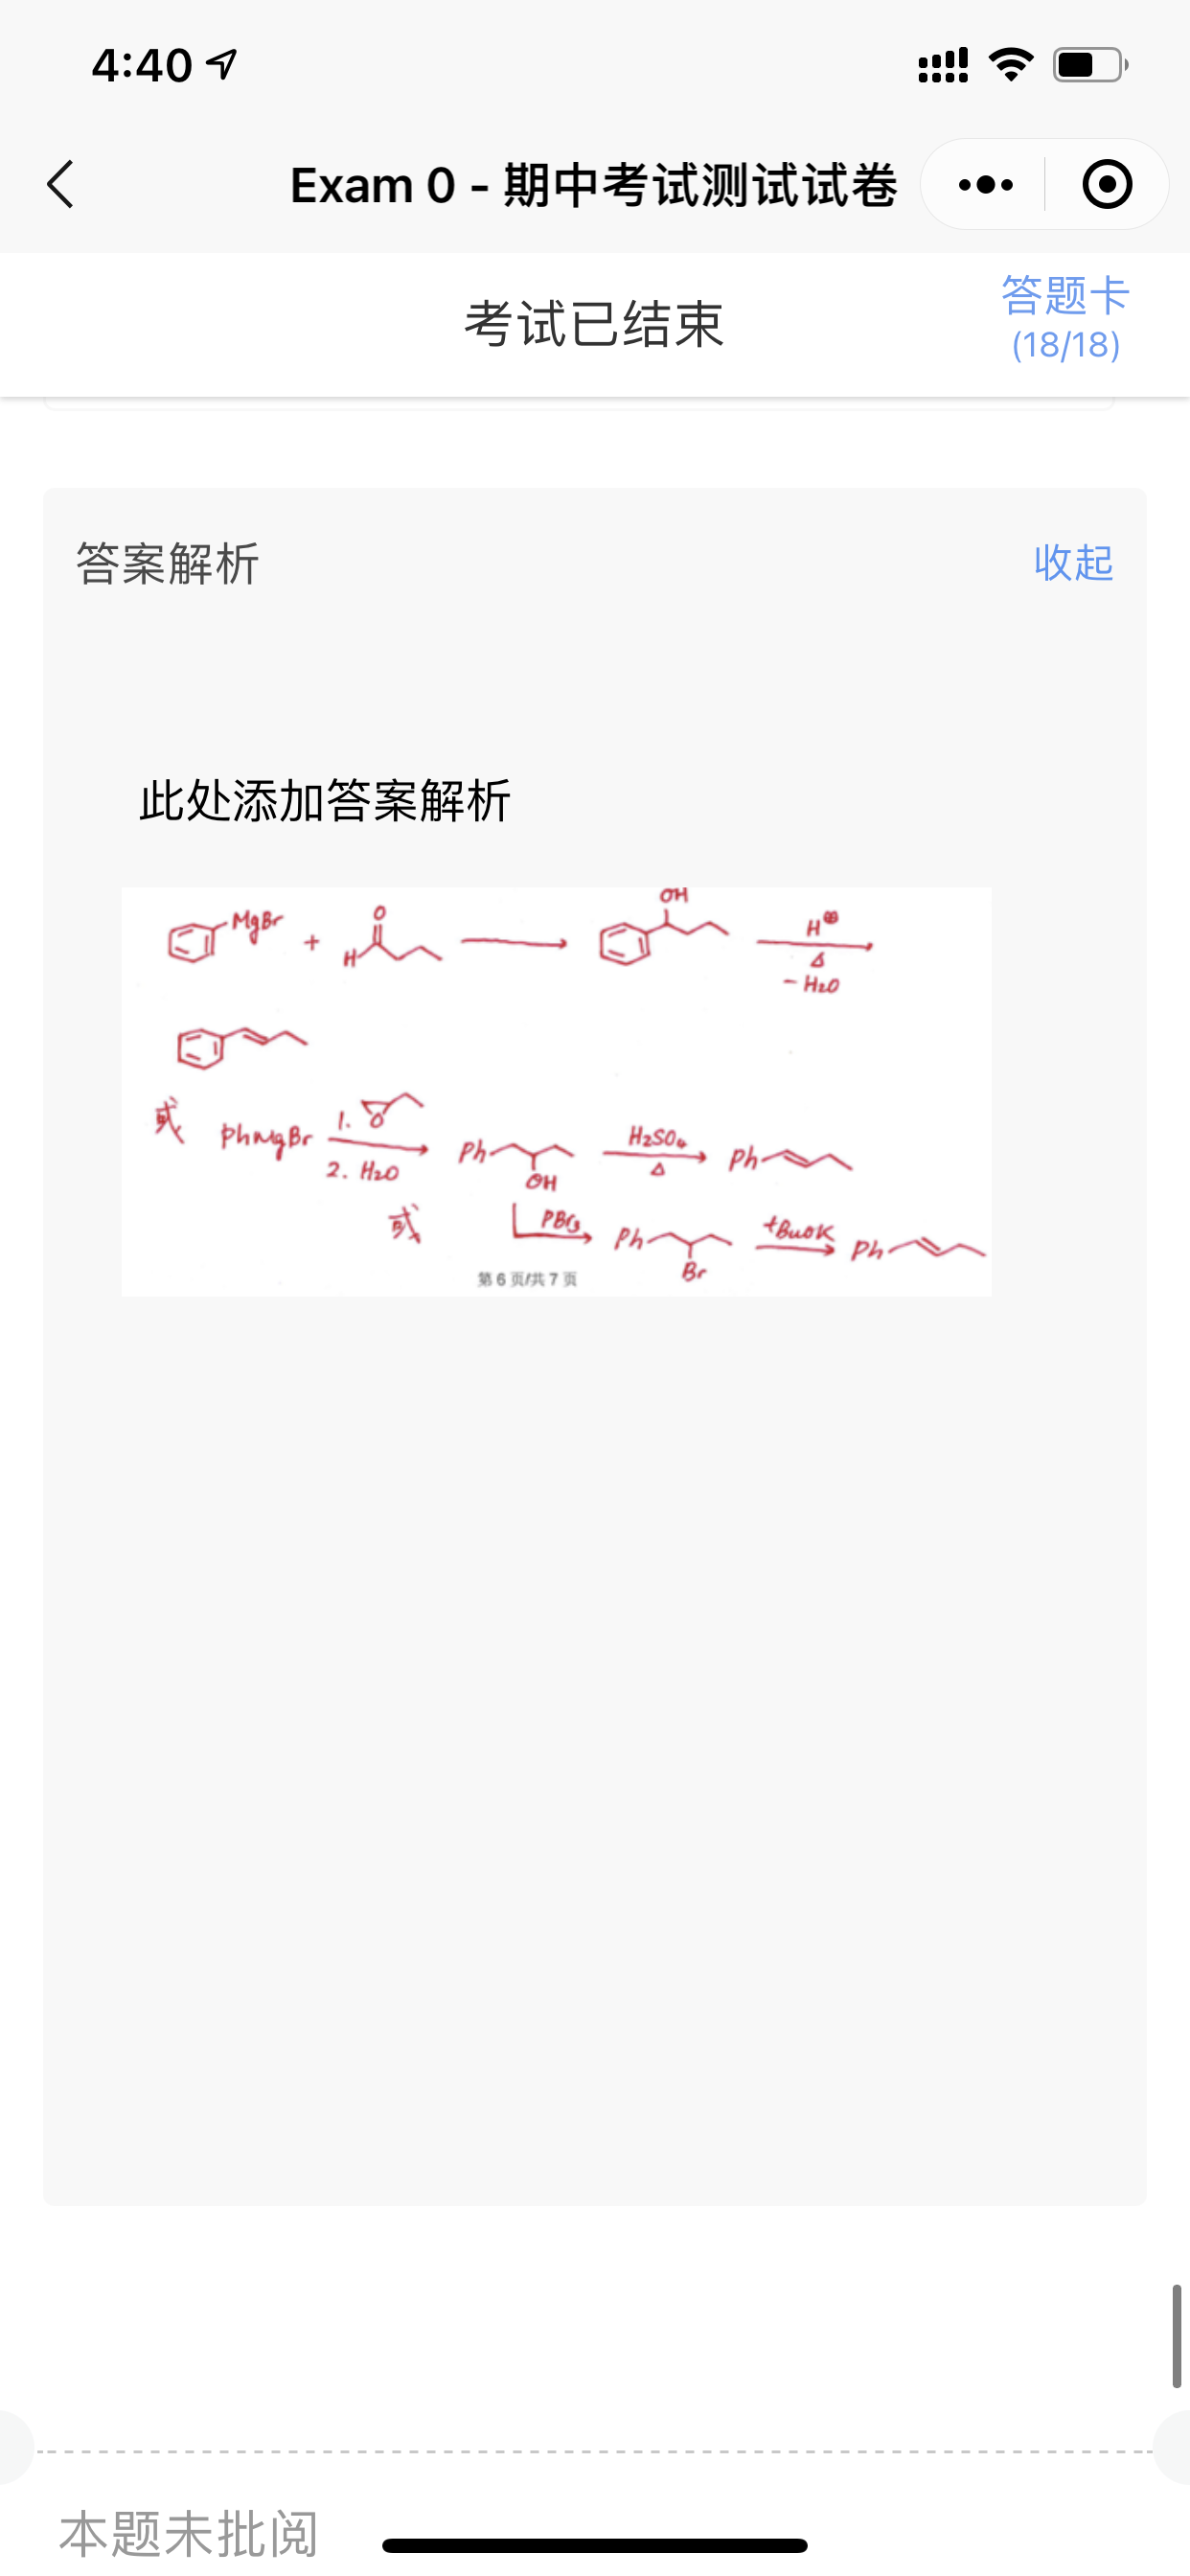 4:40
Exam 0 - 期中考试测试试卷
考试已结束
答题卡
(18/18)
答案解析
收起
此处添加答案解析
OH
MgBr + H O H⊕
Δ
- H₂O
或 PhMgBr 1. O
2. H₂O
Ph OH H₂SO₄
Δ
Ph
或 PBr₃ Ph Br tBuOK Ph
第 6 页/共 7 页
本题未批阅